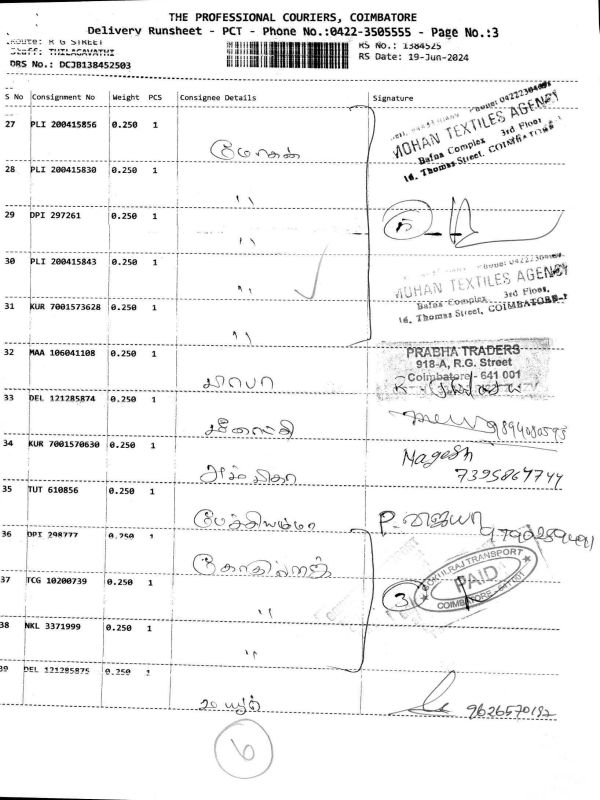 THE PROFESSIONAL COURIERS, COIMBATORE
Delivery Runsheet - PCT - Phone No.:0422-3505555 - Page No.:3
Route: R G STREET
Staff: THILAGAVATHI
DRS No.: DCJB138452503
RS No.: 1384525
RS Date: 19-Jun-2024
S No Consignment No Weight PCS Consignee Details Signature
27 PLI 200415856 0.250 1
MOHAN TEXTILES AGENCY
Bafna Complex 3rd Floor,
16, Thomas Street, COIMBATORE
28 PLI 200415830 0.250 1 "
29 DPI 297261 0.250 1 "
5
30 PLI 200415843 0.250 1 "
MOHAN TEXTILES AGENCY
Bafna Complex 3rd Floor,
16, Thomas Street, COIMBATORE-1
31 KUR 7001573628 0.250 1 "
32 MAA 106041108 0.250 1
PRABHA TRADERS
918-A, R.G. Street
Coimbatore - 641 001
33 DEL 121285874 0.250 1
34 KUR 7001570630 0.250 1 அம்பிகா
Nagesh
7395867744
35 TUT 610856 0.250 1 பேச்சியம்மா
P. விஜயா
36 DPI 298777 0.250 1
GOKULRAJ TRANSPORT
PAID
COIMBATORE - 641 001
3
37 TCG 10200739 0.250 1 "
38 NKL 3371999 0.250 1 "
39 DEL 121285875 0.250 1
9626570192
6